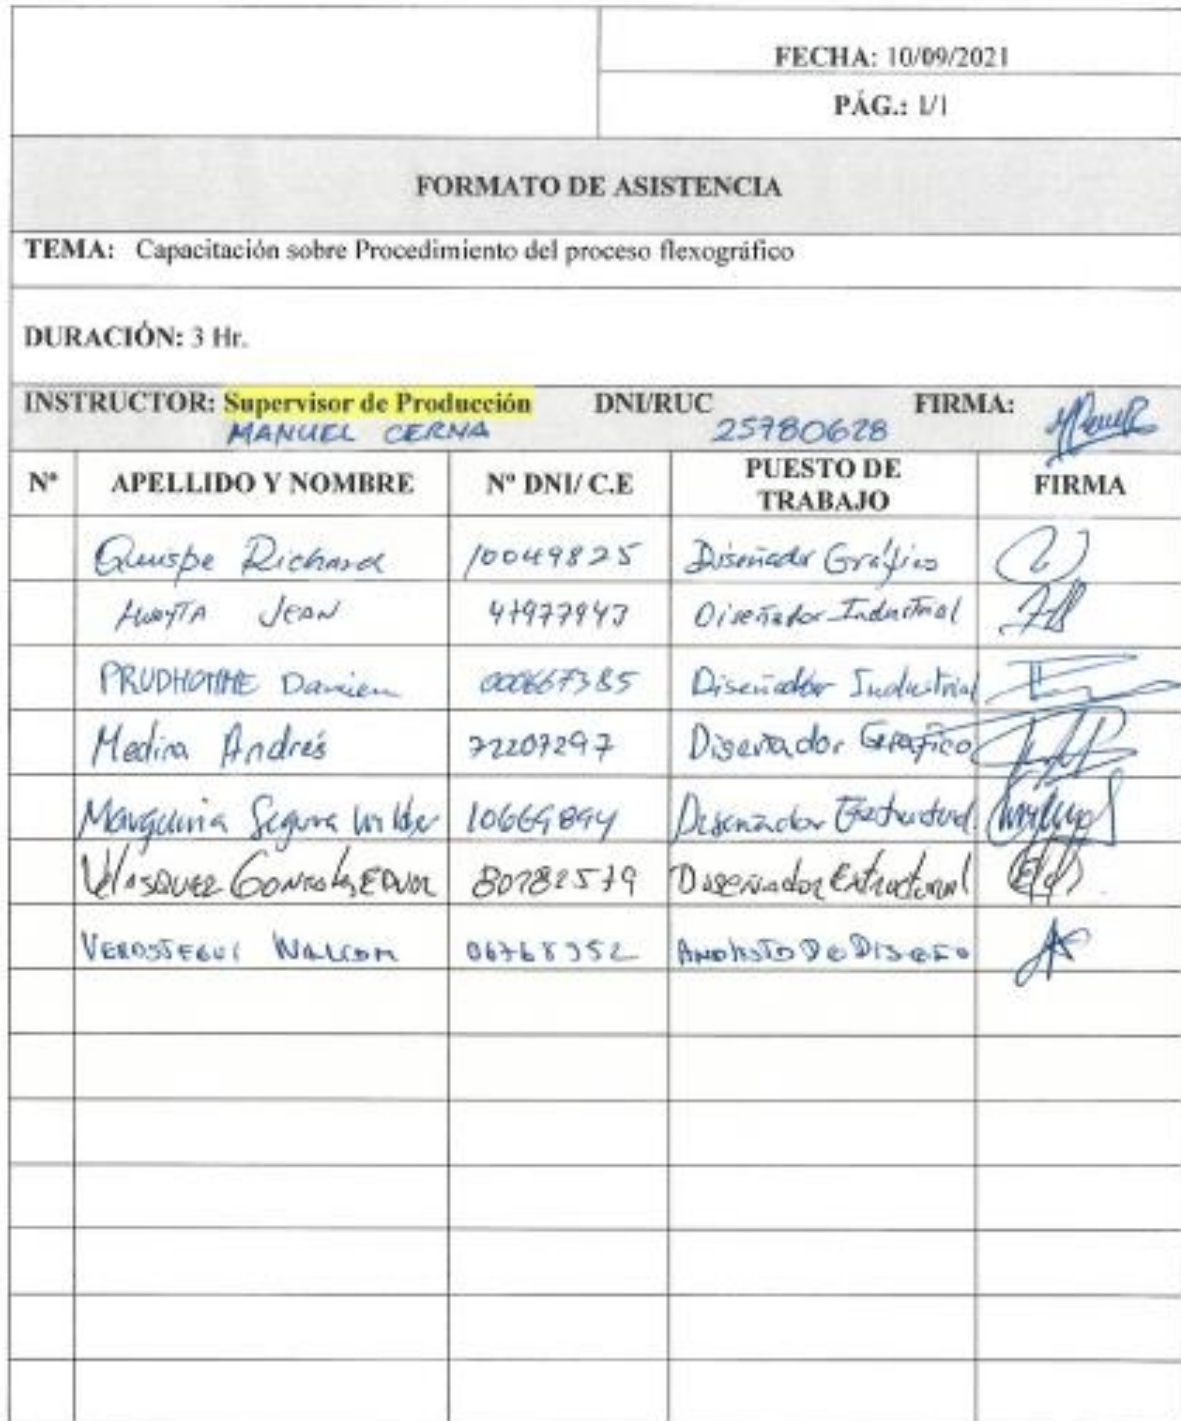 FECHA: 10/09/2021
PÁG.: 1/1
FORMATO DE ASISTENCIA
TEMA: Capacitación sobre Procedimiento del proceso flexográfico
DURACIÓN: 3 Hr.
INSTRUCTOR: Supervisor de Producción DNI/RUC FIRMA:
MANUEL CERNA 25780628
Nº APELLIDO Y NOMBRE Nº DNI/ C.E PUESTO DE TRABAJO FIRMA
Quispe Richard 10049825 Diseñador Gráfico
HUAYTA JEAN 47977943 Diseñador Industrial
PRUDHOMME Damien 000667385 Diseñador Industrial
Medina Andrés 72207297 Diseñador Gráfico
Segura Wilder 10669894 Diseñador Estructural
VELASQUEZ GONZALES 80782579 Diseñador Estructural
VEROSTEGUI WALCOM 06768352 ANALISTA DE DISEÑO